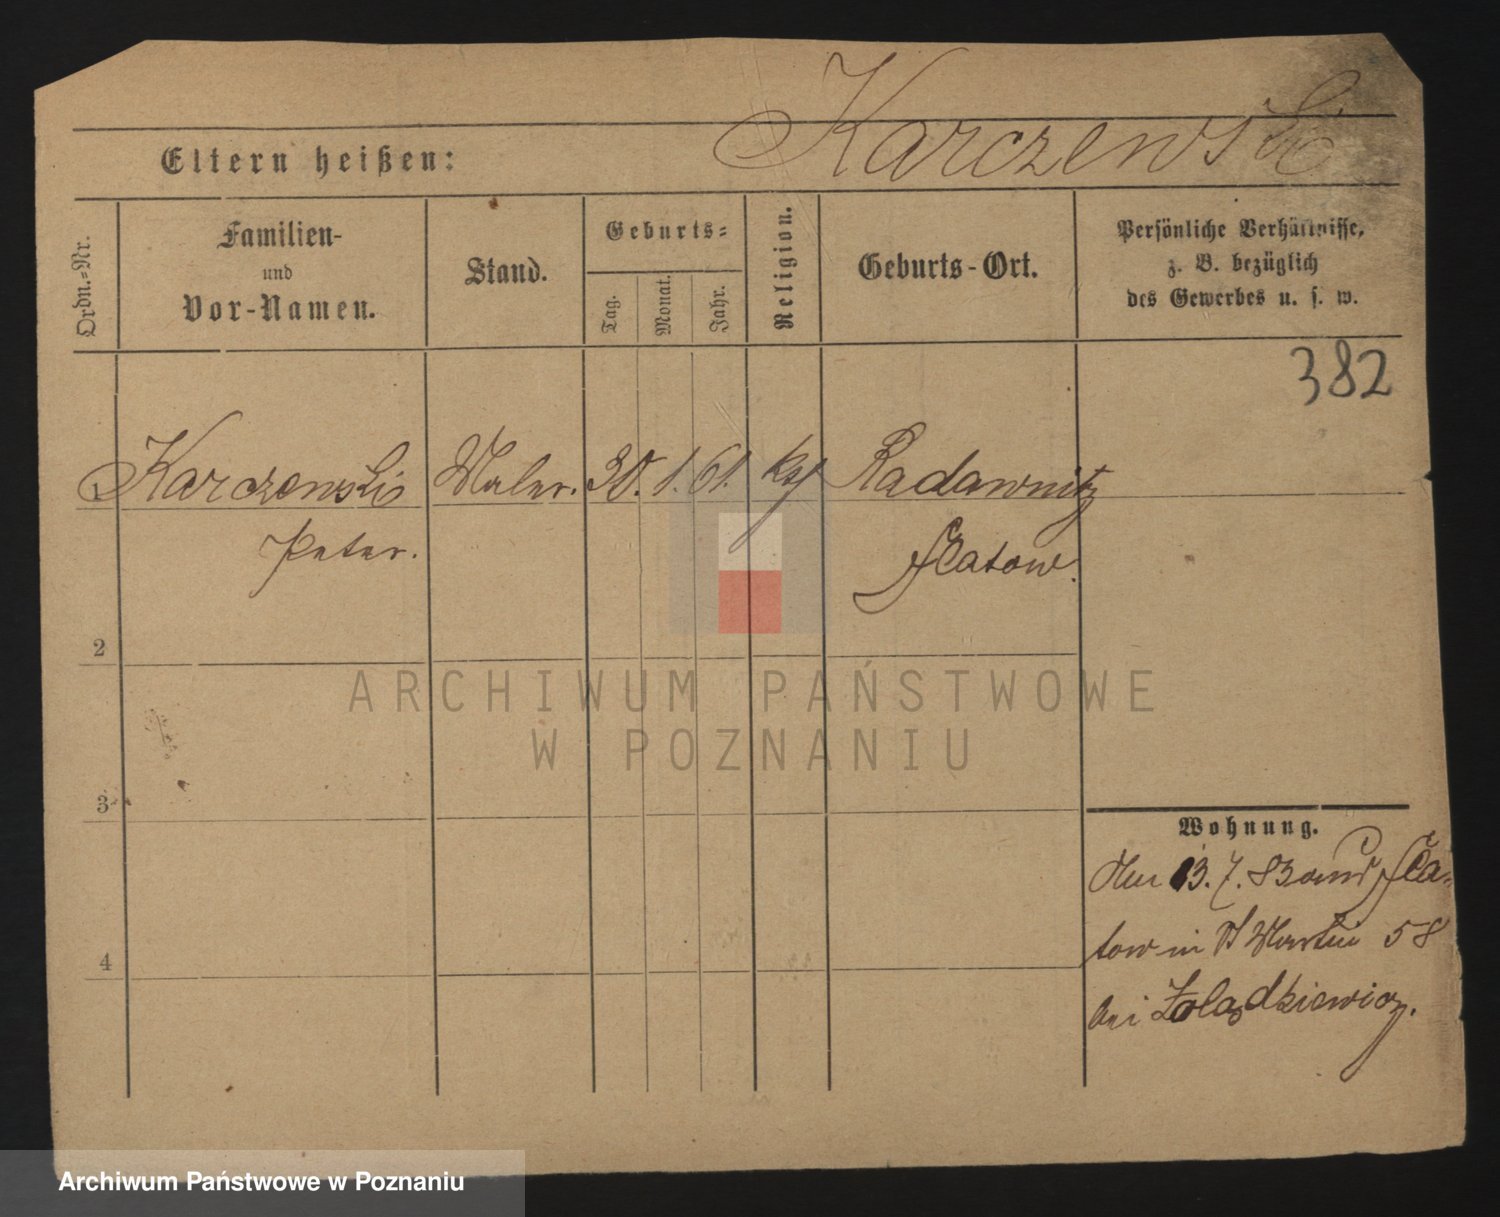 Karczewski
Eltern heißen:
Ordn.-Nr.
Familien-
und
Vor-Namen.
Stand.
Geburts-
Tag.
Monat.
Jahr.
Religion.
Geburts-Ort.
Persönliche Verhältnisse,
z. B. bezüglich
des Gewerbes u. s. w.
382
1 Karczewski Maler. 30. 1. 61. kth Radawnitz
Peter. Flatow.
2
ARCHIWUM PAŃSTWOWE
W POZNANIU
3
Wohnung.
13. 7. 83 Fla-
tow in St Martin 58
4
bei Żołądkiewicz.
Archiwum Państwowe w Poznaniu